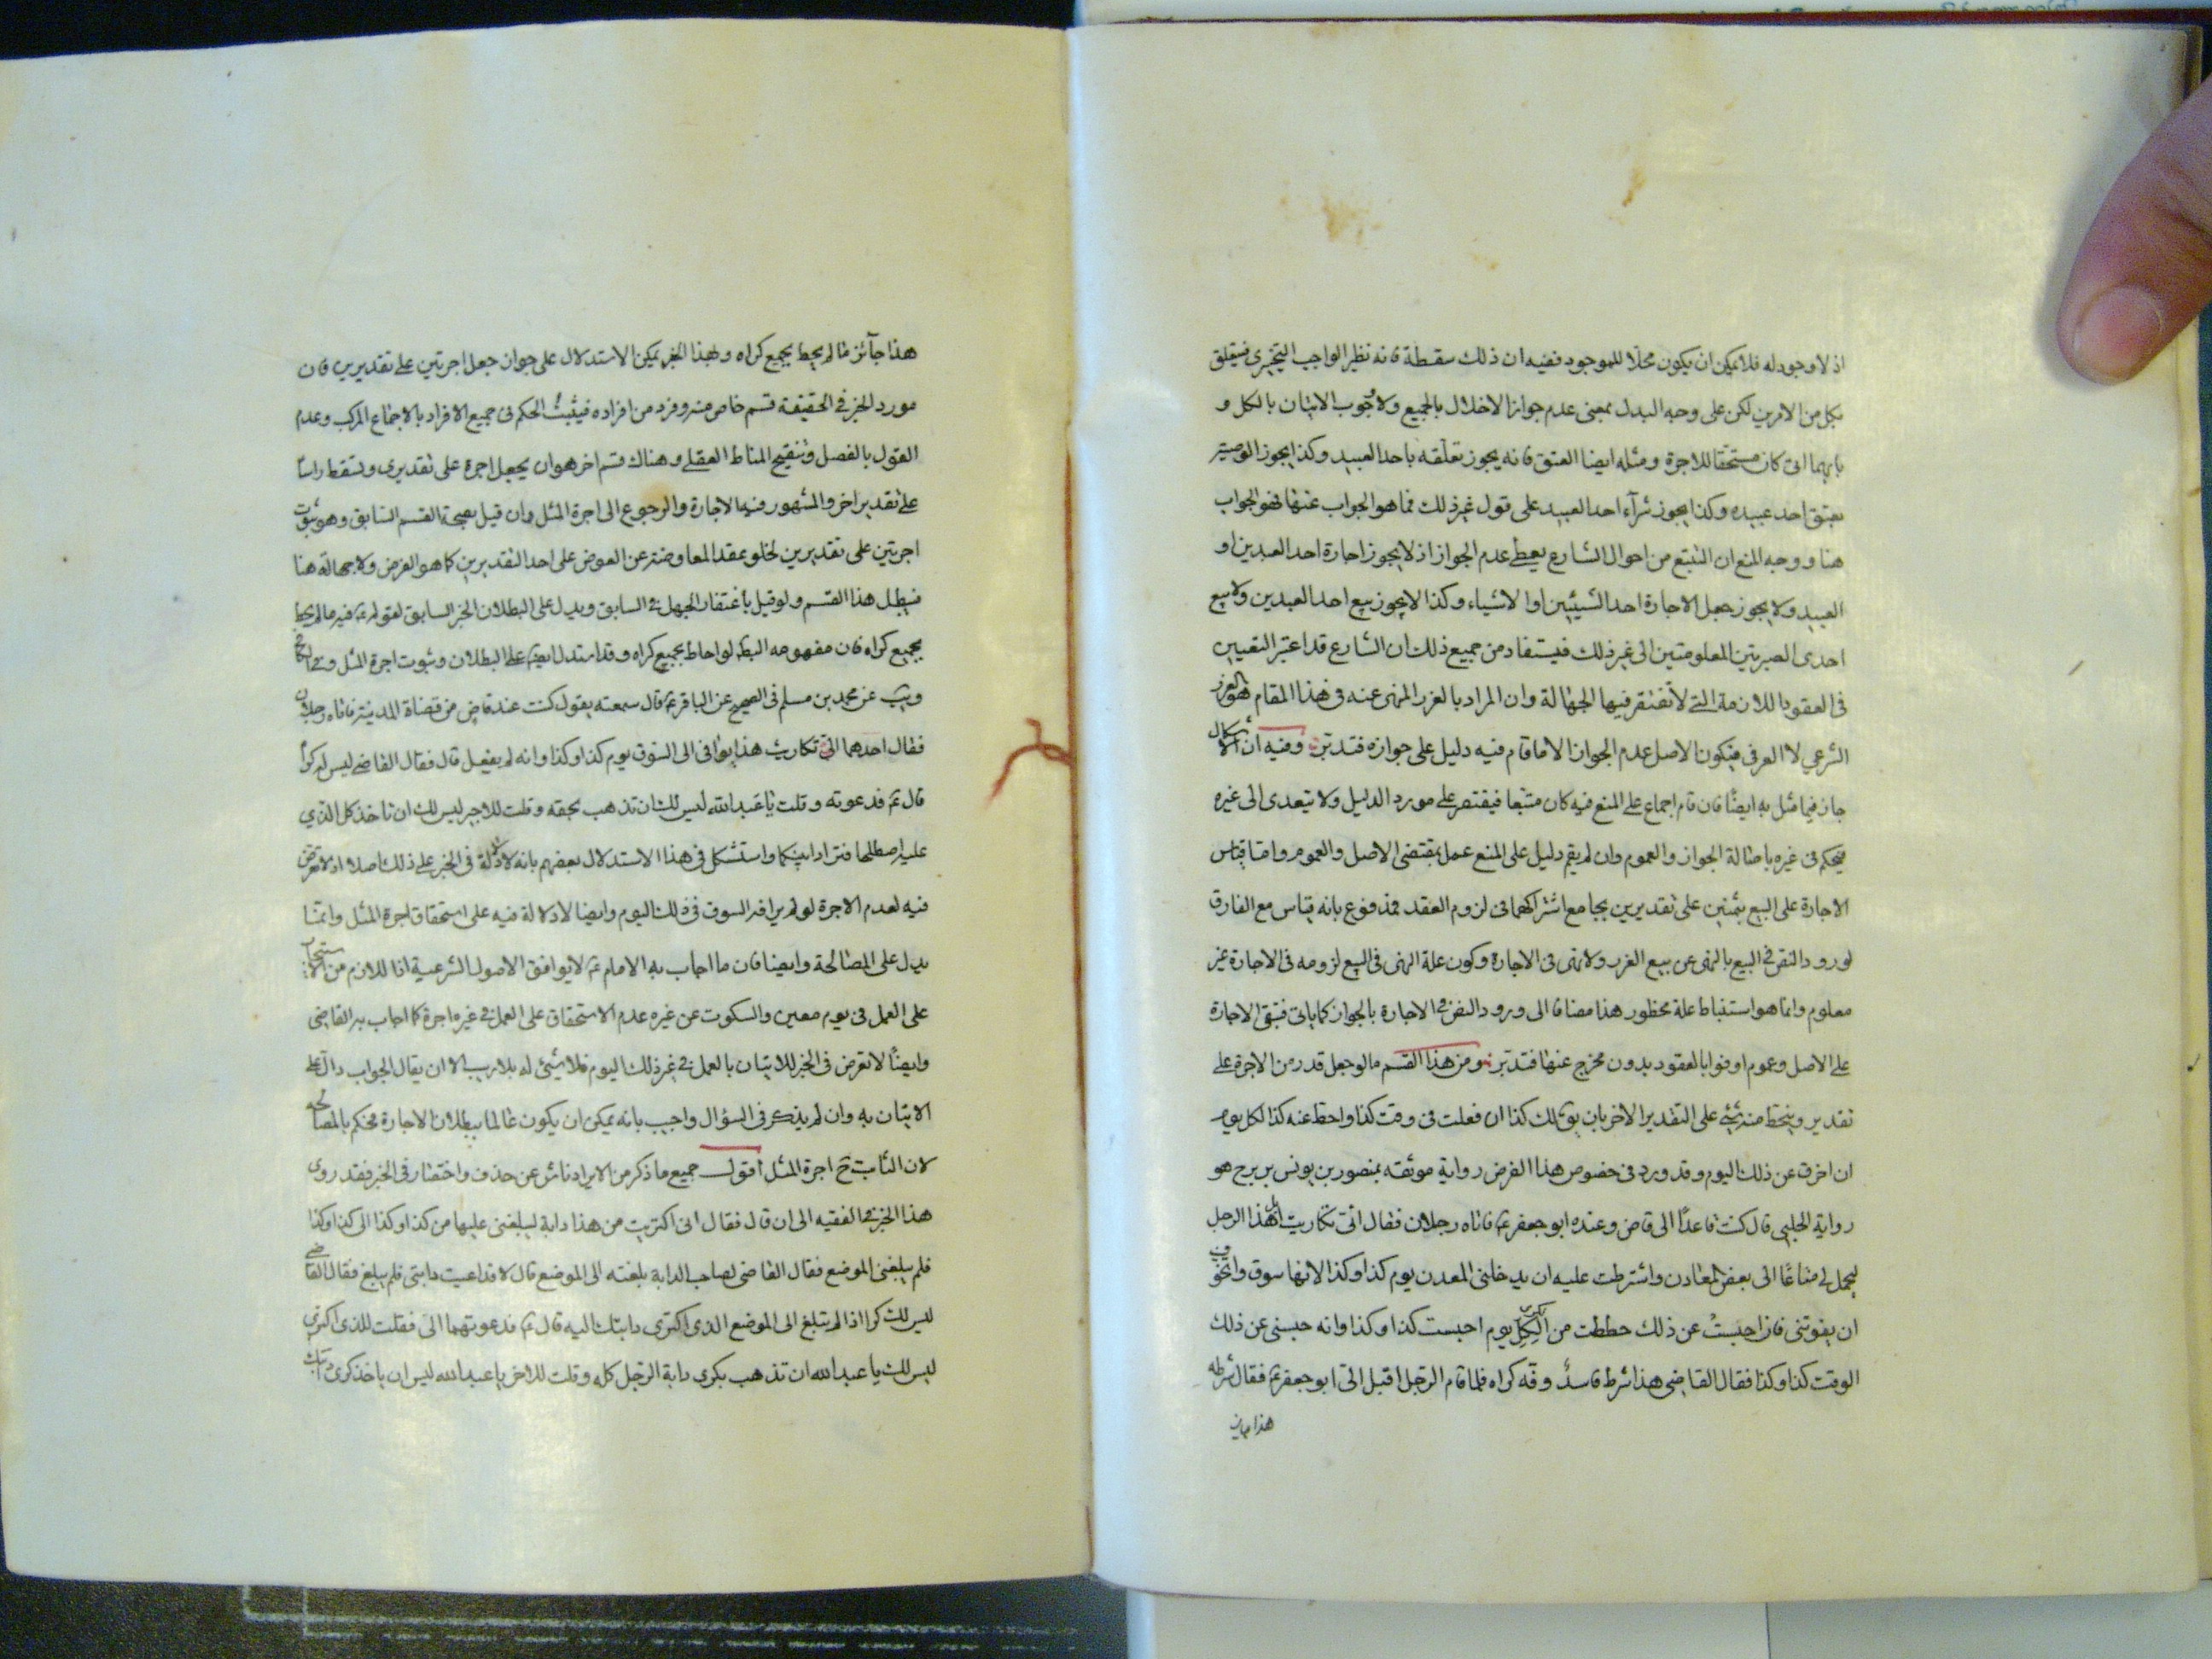 اذ لا وجود له فلا يمكن ان يكون محلا للموجود ففيه ان ذلك سقطة فانه نظير الواجب التخييرى فيتعلق
بكل من الامرين لكن على وجه البدل بمعنى عدم جواز الاخلال بالجميع ولا وجوب الاتيان بالكل و
بايهما اتى كان مستحقا للاجرة ومثله ايضا العتق فانه يجوز تعلقه باحد العبيد وكذا يجوز الوصية
بعتق احد عبيده وكذا يجوز شرآء احد العبيد على قول غير ذلك فما هو الجواب عنها فهو الجواب
هنا ووجه المنع ان التتبع من احوال الشارع يعطى عدم الجواز اذ لا يجوز اجارة احد العبدين او
العبيد ولا يجوز جعل الاجارة احد الشيئين او الاشياء وكذا لا يجوز بيع احد العبدين ولا بيع
احدى الصبرتين المعلومتين الى غير ذلك فيستفاد من جميع ذلك ان الشارع قد اعتبر التعيين
فى العقود اللازمة التى لا تفتقر فيها الجهالة وان المراد بالغرر المنهى عنه فى هذا المقام هو الغرر
الشرعي لا العرفى فيكون الاصل عدم الجواز الا ما قام فيه دليل على جوازه فتدبر وفيه ان الاشكال
جاز فيما مثل به ايضًا فان قام اجماع على المنع فيه كان متبعا فيقتصر على مورد الدليل ولا يتعدى الى غيره
فيحكم فى غيره باصالة الجواز والعموم وان لم يقم دليل على المنع عمل بمقتضى الاصل والعموم واما قياس
الاجارة على البيع بثمنين على تقديرين بجامع اشتراكهما فى لزوم العقد فمدفوع بانه قياس مع الفارق
لورود النص فى البيع بالنهى عن بيع الغرر ولا نهى فى الاجارة وكون علة النهى فى البيع لزومه فى الاجارة غير
معلوم وانما هو استنباط علة محظور هذا مضافا الى ورود النص فى الاجارة بالجواز كما ياتى فتبقى الاجارة
على الاصل وعموم اوفوا بالعقود بدون مخرج عنها فتدبر ومن هذا القسم ما لو جعل قدر من الاجرة على
تقدير وينحط منه شئ على التقدير الاخر بان يق لك كذا ان فعلت فى وقت كذا واحط عنه كذا لكل يوم
ان اخرت عن ذلك اليوم وقد ورد فى خصوص هذا الفرض رواية موثقه بمنصور بن يونس بزرج هو
رواية الحلبى قال كنت قاعدًا الى قاض وعنده ابو جعفر ع فاتاه رجلان فقال انى تكاريت ابل هذا الرجل
ليحمل لى متاعًا الى بعض المعادن واشترطت عليه ان يدخلنى المعدن يوم كذا وكذا لانها سوق واتخوف
ان يفوتنى فان احبست عن ذلك حططت من الكرى لكل يوم احبست كذا وكذا وانه حبسنى عن ذلك
الوقت كذا وكذا فقال القاضى هذا شرط فاسد وفه كراه فلما قام الرجل اقبل الى ابو جعفر ع فقال شرطه
هذا جايز
هذا جآئز ما لم يحط بجميع كراه وبهذا الخبر يمكن الاستدلال على جواز جعل اجرتين على تقديرين فان
مورد الخبر فى الحقيقة قسم خاص منه وفرد من افراده فيثبت الحكم فى جميع الافراد بالاجماع المركب وعدم
القول بالفصل وتنقيح المناط العقلى وهناك قسم اخر هو ان يجعل اجرة على تقديرى وتسقط راسًا
على تقدير اخر والمشهور فيها الاجارة والرجوع الى اجرة المثل وان قيل بصحة القسم السابق وهو ثبوت
اجرتين على تقديرين لخلو عقد المعاوضة عن العوض على احد التقديرين كما هو الفرض ولا جهالة هنا
فيبطل هذا القسم ولو قيل باغتفار الجهل فى السابق ويدل على البطلان الخبر السابق لقوله ع فيه ما لم يحط
بجميع كراه فان مفهومه البطلان لو احاط بجميع كراه وقد استدل ايضا على البطلان وثبوت اجرة المثل وفى الكافى
ويب عن محمد بن مسلم فى الصحيح عن الباقر ع قال سمعته يقول كنت عند قاض من قضاة المدينة فاتاه رجلان
فقال احدهما انى تكاريت هذا يوافى الى السوق يوم كذا وكذا وانه لم يفعل قال فقال القاضى ليس له كرا
قال ع فدعوته وقلت يا عبد الله ليس لك ان تذهب بحقه وقلت للاجير ليس لك ان تاخذ كل الذي
عليه اصطلحا فترادا بينكما واستشكل فى هذا الاستدلال بعضهم بانه لا دلالة فى الخبر على ذلك اصلا اذ لا تعرض
فيه لعدم الاجرة لو لم يواف السوق فى ذلك اليوم وايضا لا دلالة فيه على استحقاق اجرة المثل وانما
يدل على المصالحة وايضا فان ما اجاب به الامام ع لا يوافق الاصول الشرعية اذ اللازم من الاستيجار
على العمل فى يوم معين والسكوت عن غيره عدم الاستحقاق على العمل فى غيره اجرة كما اجاب به القاضى
وايضًا لا تعرض فى الخبر للاتيان بالعمل فى غير ذلك اليوم فلا شئ له بلا ريب الا ان يقال الجواب دال على
الاتيان به وان لم يذكر فى السؤال واجيب بانه يمكن ان يكون عالما ببطلان الاجارة فحكم بالمصالحه
لان الثابت ح اجرة المثل اقول جميع ما ذكر من الايراد ناش عن حذف واختصار فى الخبر فقد روى
هذا الخبر فى الفقيه الى ان قال فقال انى اكتريت من هذا دابة ليبلغنى عليها من كذا وكذا الى كذا وكذا
فلم يبلغنى الموضع فقال القاضى لصاحب الدابة بلغته الى الموضع قال لا قد اعييت دابتى فلم يبلغ فقال القاضى
ليس لك كرا اذا لم تبلغ الى الموضع الذى اكترى دابتك اليه قال ع فدعوتهما الى فقلت للذى اكترى
ليس لك يا عبد الله ان تذهب بكرى دابة الرجل كله وقلت للاخر يا عبد الله ليس ان ياخذ كرى دابتك